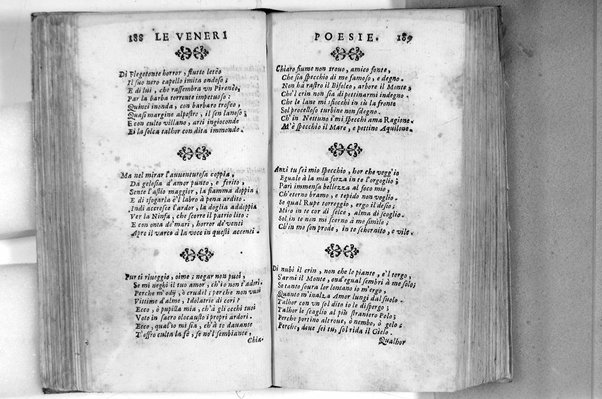 188 LE VENERI
Di Flegetonte horror, flutto letèo
Il suo nero capello imita ondoso;
E di lui, che rassembra un Pirenèo,
Per la barba torrente impetuoso:
Quinci inonda, con barbaro trofeo,
Quasi margine alpestro, il sen lanoso;
E con culto villano, arti ingioconde
Ei la solca talhor con dita immonde.
Ma nel mirar l'avventurosa coppia,
Da gelosia d'amor punto, e ferito,
Sente l'astio maggior, la fiamma doppia,
E di sfogarla è'l labro à pena ardito.
Indi accresce l'ardor, la doglia addoppia
Ver la Ninfa, che scorre il patrio lito:
E con onta de' mari, horror de' venti
Apre il varco à la voce in questi accenti.
Pur ti riveggio, oime; negar non puoi,
Se mi neghi il tuo amor, ch'io non t'adori.
Perche m'odij, ò crudel; perche non vuoi
Vittime d'alme, Idolatrie di cori?
Ecco, ò pupilla mia, ch'à gli occhi tuoi
Voto in sacro olocausto i propri ardori.
Ecco, qual'io mi sia, ch'à te davante
T'offro culta la fè, se no'l sembiante;
Chia-
POESIE. 189
Chiaro fiume non trovo, amico fonte,
Che sia specchio di me famoso, e degno.
Non hà rastro il Bifolco, arbore il Monte,
Che'l crin non sia di pettinarmi indegno.
Che le lane mi sficchi in sù la fronte
Sol procelloso turbine non sdegno.
Ch'in Nettuno i'mi specchi ama Ragione.
M'è specchio il Mare, e pettine Aquilone.
Anzi tu sei mio specchio, hor che vegg'io
Eguale à la mia forza in te l'orgoglio;
Pari immensa bellezza al foco mio,
Ch'eterno bramo, e tepido non voglio.
Se qual Rupe torreggio, ergo il desìo;
Miro in te cor di selce, alma di scoglio.
Sol in te non mi scerno à me simile;
Ch'in me son prode, in te schernito, e vile.
Di nubi il crin, non che le piante, e'l tergo,
Hà smalti il Monte, ond'egual sembri à me solo;
Se tanto soura lor lontano io m'ergo,
Quanto m'inalza Amor lungi dal suolo.
Talhor con un sol dito io le dispergo;
Talhor le scoglio al più straniero Polo;
Perche portino altrove, ò nembo, ò gelo;
Perche, dove sei tu, sol rida il Cielo.
Qualhor